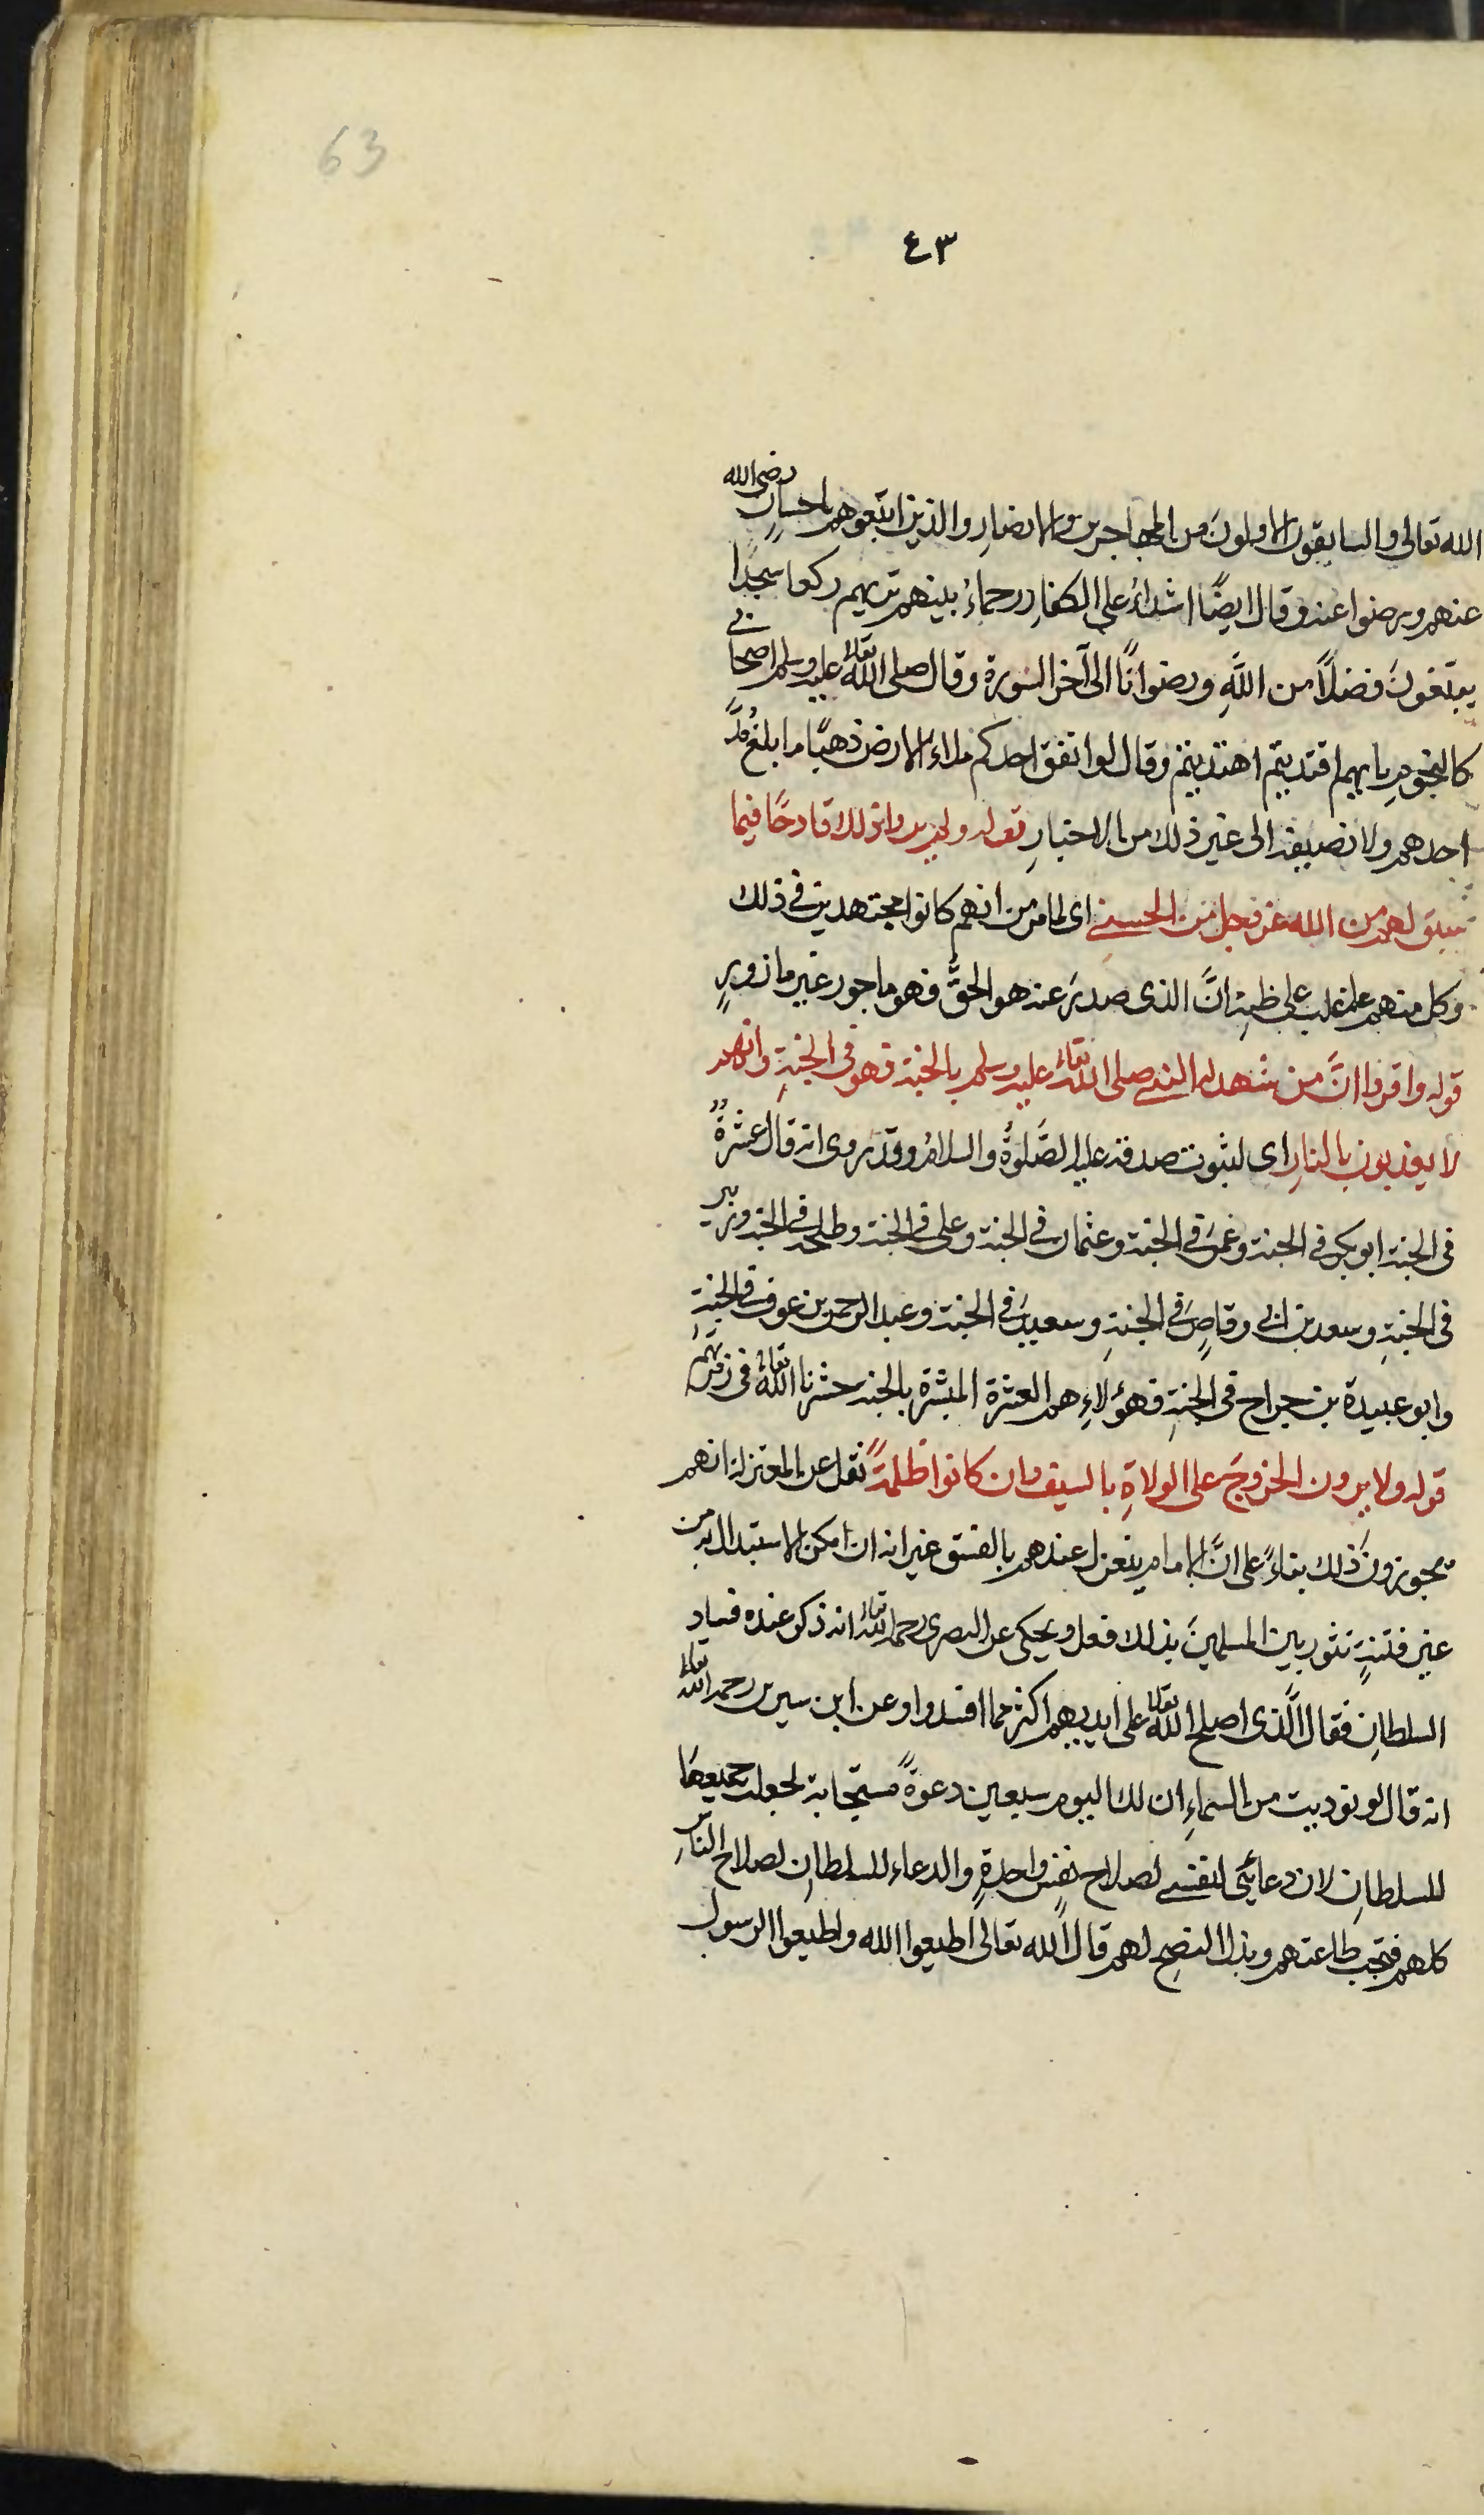 63
٤٣
الله تعالى والسابقون الاولون من المهاجرين والانصار والذين اتبعوهم باحسانٍ رضى الله
عنهم ورضوا عنه وقال ايضًا اشداءُ على الكفار رحماءُ بينهم تريهم ركعا سجدًا
يبتغونَ فضلًا من اللَّهِ ورضوانًا الى آخر السورة وقال صلى الله تعالى عليه وسلم اصحابى
كالنجومِ بايهم اقتديتم اهتديتم وقال لو انفق احدكم ملاء الارض ذهبًا ما ابلغ مُدَّ
احدهم ولا نصيفه الى غير ذلك من الاخبارِ قوله ولم يروا ذلك قادحًا فيما
سبق لهم من الله عز وجل من الحسنى اى لما مر من انهم كانوا مجتهدين فى ذلك
وكل منهم غلب على ظنهِ انَّ الذى صدرَ عنه هو الحقُّ فهو ماجور غير مازورٍ
قوله واقروا انَّ من شهد له النبى صلى الله تعالى عليه وسلم بالجنة فهو فى الجنةِ وانهم
لا يعذبون بالنارِ اى لثبوت صدقه عليه الصَّلوةُ والسلامُ وقد روى انه قال عشرةٌ
فى الجنة ابو بكر فى الجنة وعمرَ فى الجنة وعثمان فى الجنة وعلى فى الجنة وطلحة فى الجنة وزبير
فى الجنةِ وسعد بن ابى وقاصٍ فى الجنةِ وسعيدَ فى الجنة وعبد الرحمن بن عوف فى الجنةِ
وابو عبيدة بن جراح فى الجنةِ فهؤلاءِ هم العشرة المبشرة بالجنة حشرنا الله تعالى فى زمرتهم
قوله ولا يرون الخروجَ على الولاةِ بالسيف وان كانوا ظلمةً نقل عن المعتزلة انهم
يجوزونَ ذلك بناءً على انَّ الامام ينعزل عندهم بالفسق غير انه ان امكن الاستبدال به من
غير فتنةٍ تثور بين المسلمينَ بذلك فعل ويحكى عن البصرى رحمه الله تعالى انه ذكر عنده فساد
السلطانِ فقال الَّذى اصلح الله تعالى على ايديهم اكثر مما افسدوا وعن ابن سيرين رحمه الله تعالى
انه قال لو نوديت من السماءِ ان لك اليوم سبعين دعوةً مستجابة لجعلت جميعها
للسلطانِ لان دعائى لنفسى لصلاح نفسٍ واحدةٍ والدعاء للسلطانِ لصلاح الناسِ
كلهم فتجب طاعتهم وبذل النصح لهم قال الله تعالى اطيعوا الله واطيعوا الرسول